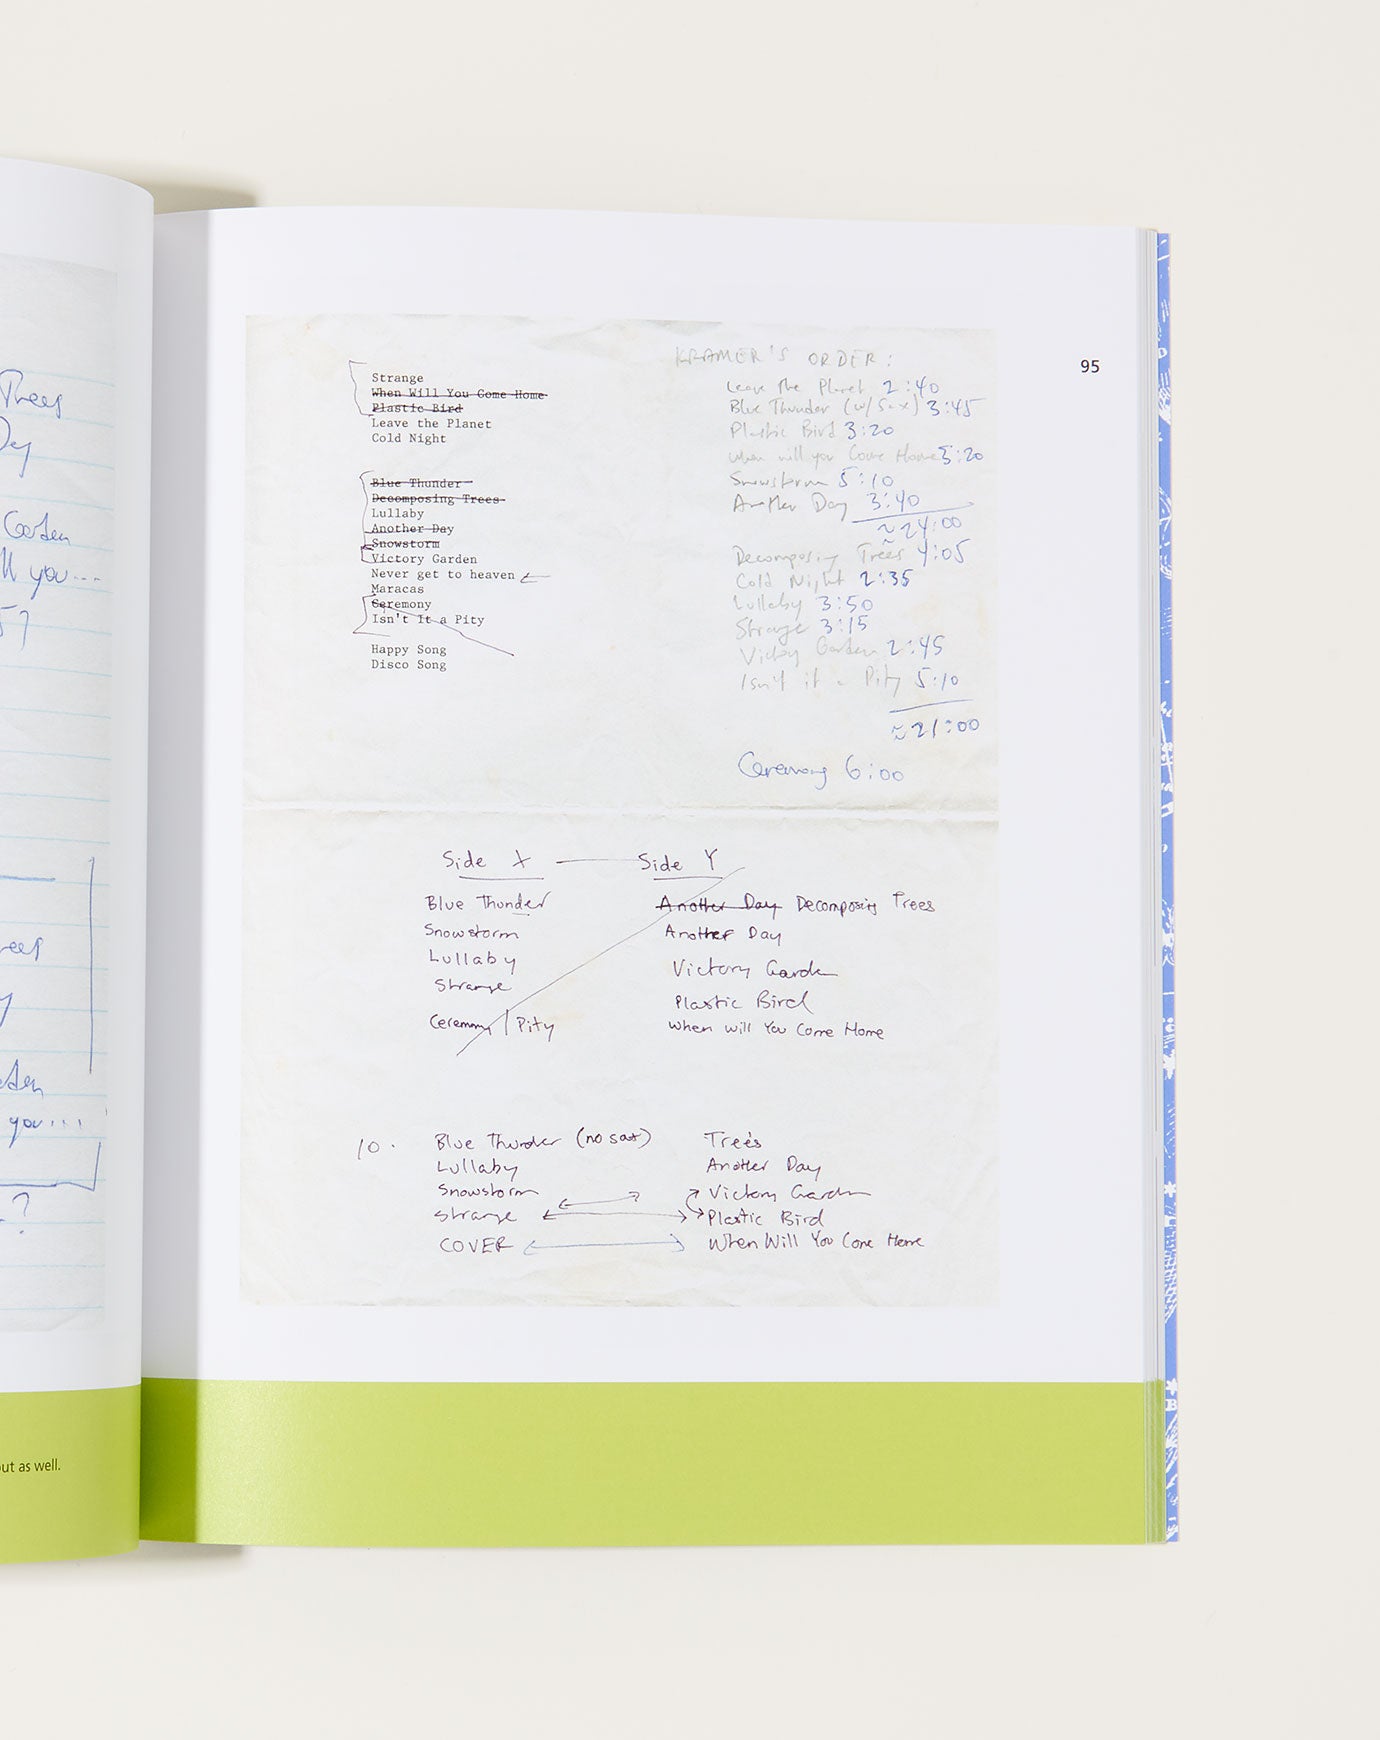 Trees
Day
Garden
ll you...
5?
rees
y
rden
you...
?
ut as well.
95
Strange
When Will You Come Home
Plastic Bird
Leave the Planet
Cold Night
Blue Thunder
Decomposing Trees
Lullaby
Another Day
Snowstorm
Victory Garden
Never get to heaven
Maracas
Ceremony
Isn't It a Pity
Happy Song
Disco Song
KRAMER'S ORDER:
Leave the Planet 2:40
Blue Thunder (w/Sax) 3:45
Plastic Bird 3:20
when will you Come Home 3:20
Snowstorm 5:10
Another Day 3:40
≈24:00
Decomposing Trees 4:05
Cold Night 2:35
Lullaby 3:50
Strange 3:15
Victory Garden 2:45
Isn't it a Pity 5:10
≈21:00
Ceremony 6:00
Side X — Side Y
Blue Thunder
Snowstorm
Lullaby
Strange
Ceremony / Pity
Another Day Decomposing Trees
Another Day
Victory Garden
Plastic Bird
When Will You Come Home
10.
Blue Thunder (no sax)
Lullaby
Snowstorm
Strange
COVER
Trees
Another Day
Victory Garden
Plastic Bird
When Will You Come Home